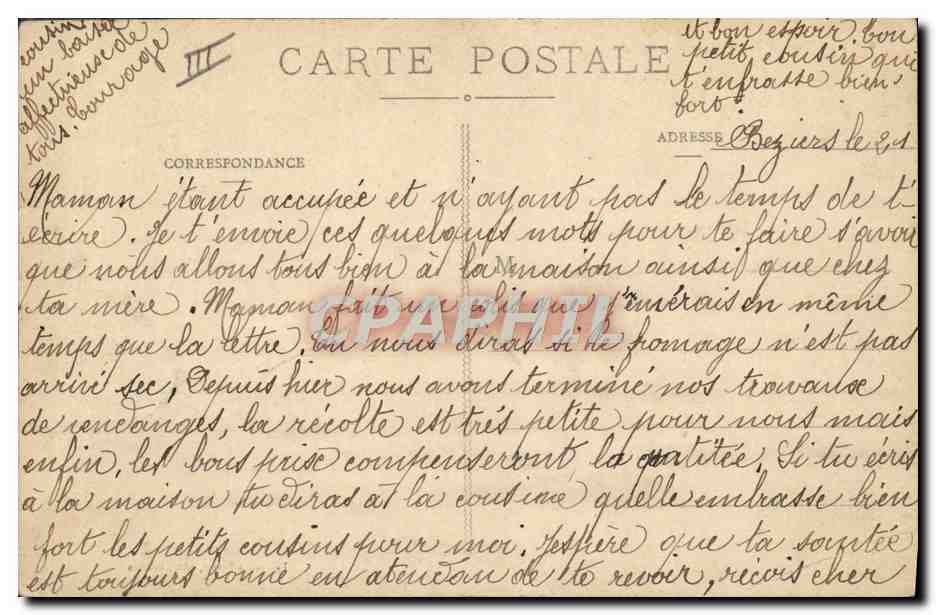 III
CARTE POSTALE
CORRESPONDANCE
ADRESSE
Beziers le 21
Maman étant accupée et n'ayant pas le temps de t'
écrire. Je t'envoie ces quelques mots pour te faire s'avoir
que nous allons tous bien à la maison ainsi que chez
ta mère. Maman fait un colis que j'enverais en même
temps que la lettre. Tu nous diras si le fromage n'est pas
arrivé sec, Depuis hier nous avons terminé nos travause
de vendanges, la récolte est très petite pour nous mais
enfin, les bous prise compenseront la quatitée. Si tu écris
à la maison tu diras à la cousine quelle embrasse bien
fort les petits cousins pour moi. J'espère que ta santée
est toujours bonne en atendan de te revoir, reçois cher
cousin
un baiser
affectueuse de
tous. Courage
et bon espoir. Ton
petit cousin qui
t'enfrasse bien
fort.
M
CPAPHIL